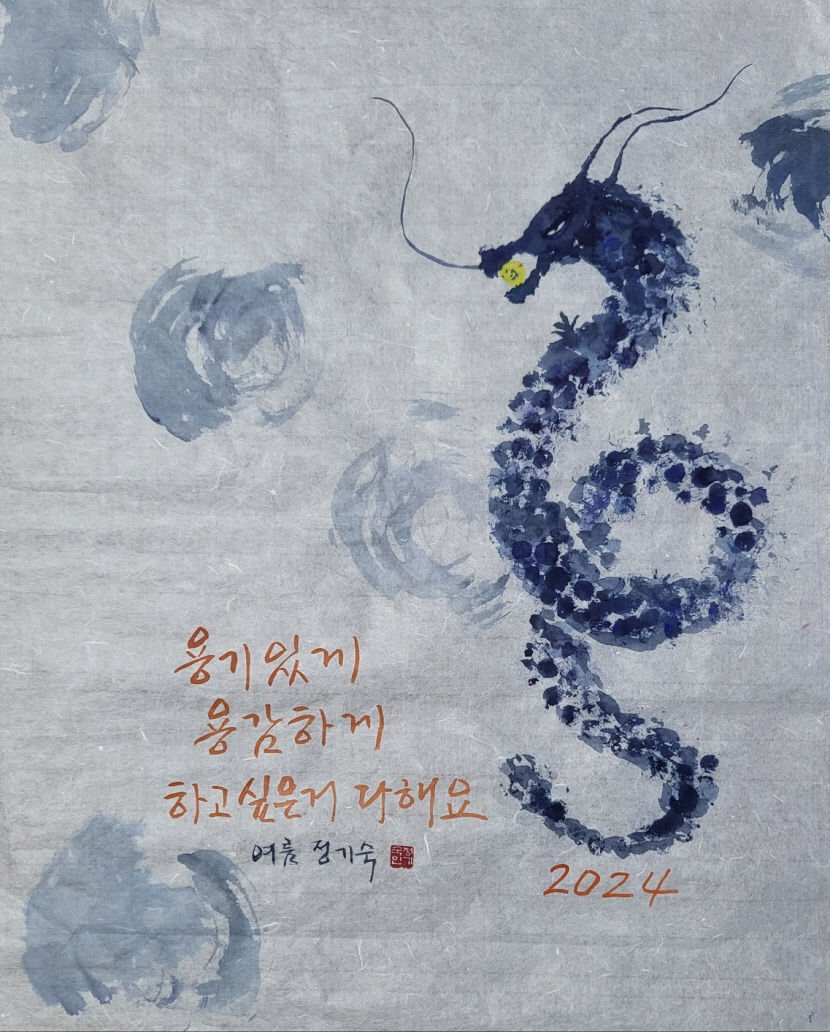 용기있게
용감하게
하고싶은거 다해요
여름 정기숙
2024